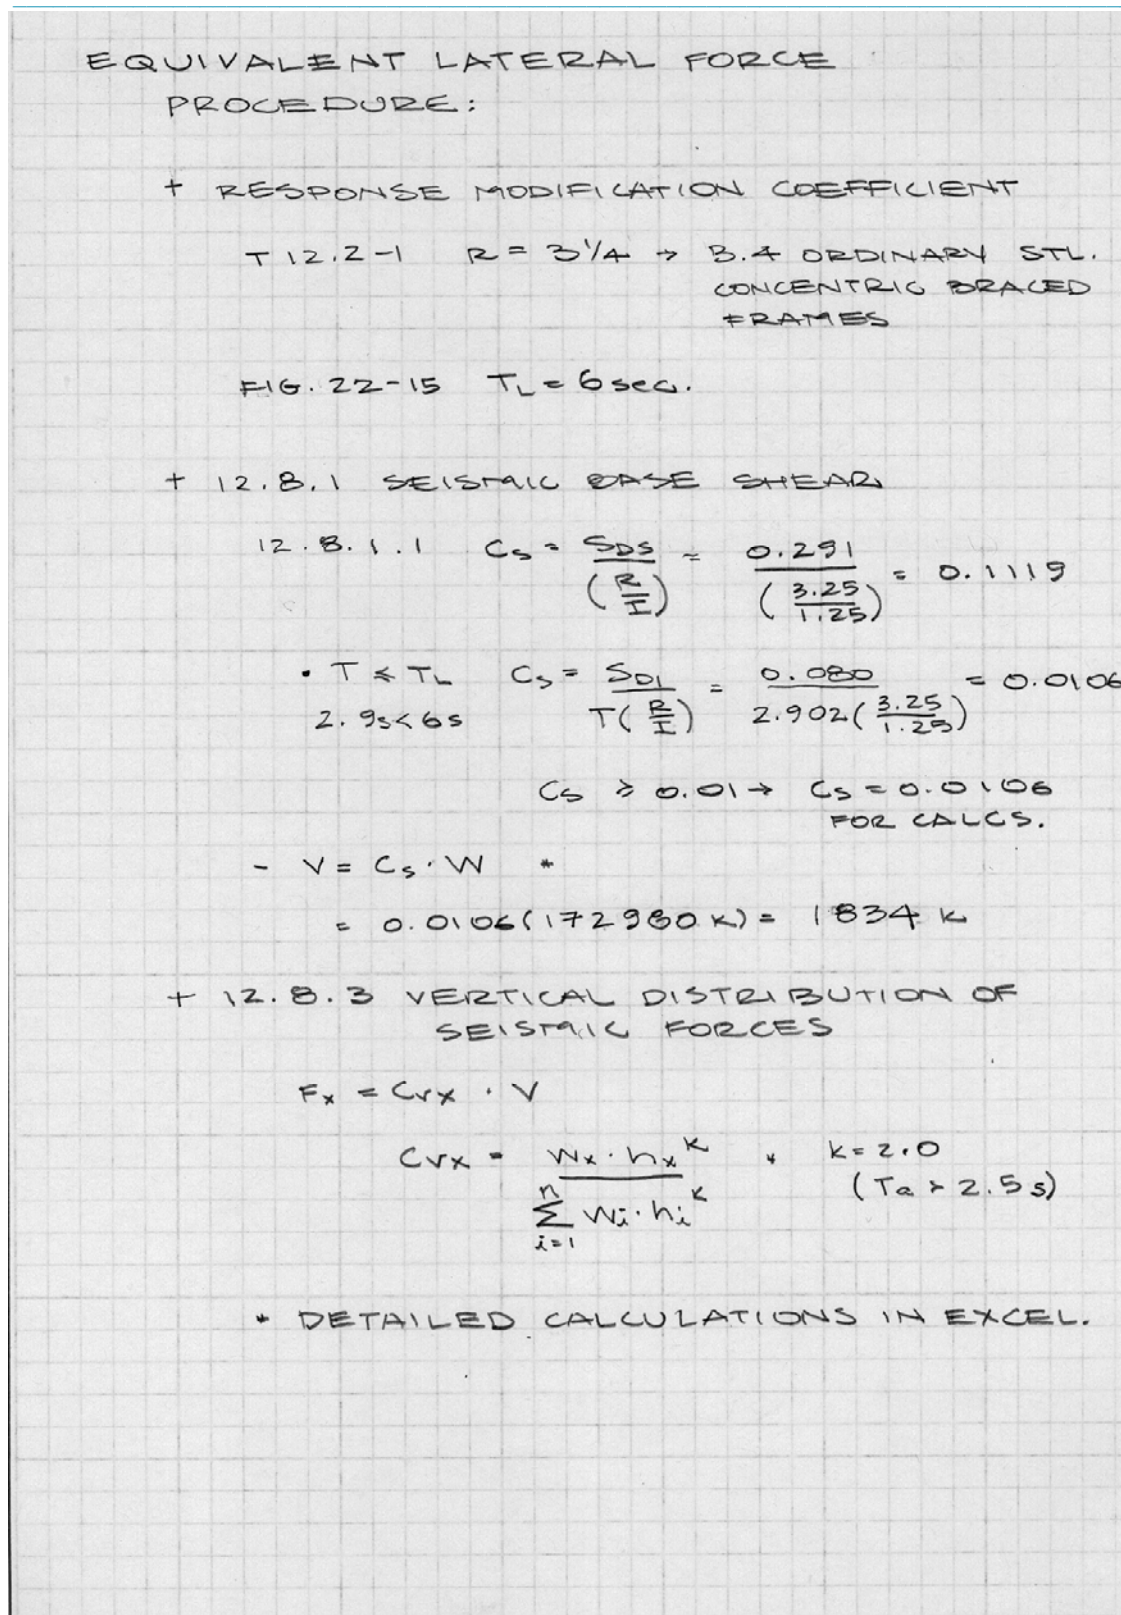 EQUIVALENT LATERAL FORCE
PROCEDURE:
+ RESPONSE MODIFICATION COEFFICIENT
T 12.2-1 R = 3 1/4 → B.4 ORDINARY STL.
CONCENTRIC BRACED
FRAMES
FIG. 22-15 T_L = 6 sec.
+ 12.8.1 SEISMIC BASE SHEAR
12.8.1.1 C_s = S_DS / (R/I) = 0.291 / (3.25/1.25) = 0.1119
• T ≤ T_L C_s = S_D1 / T(R/I) = 0.080 / 2.902(3.25/1.25) = 0.0106
2.9s < 6s
C_s ≥ 0.01 → C_s = 0.0106
FOR CALCS.
- V = C_s · W *
= 0.0106 (172980 K) = 1834 K
+ 12.8.3 VERTICAL DISTRIBUTION OF
SEISMIC FORCES
F_x = C_vx · V
C_vx = w_x · h_x^k / Σ_{i=1}^{n} w_i · h_i^k * k = 2.0
(T_a > 2.5 s)
* DETAILED CALCULATIONS IN EXCEL.